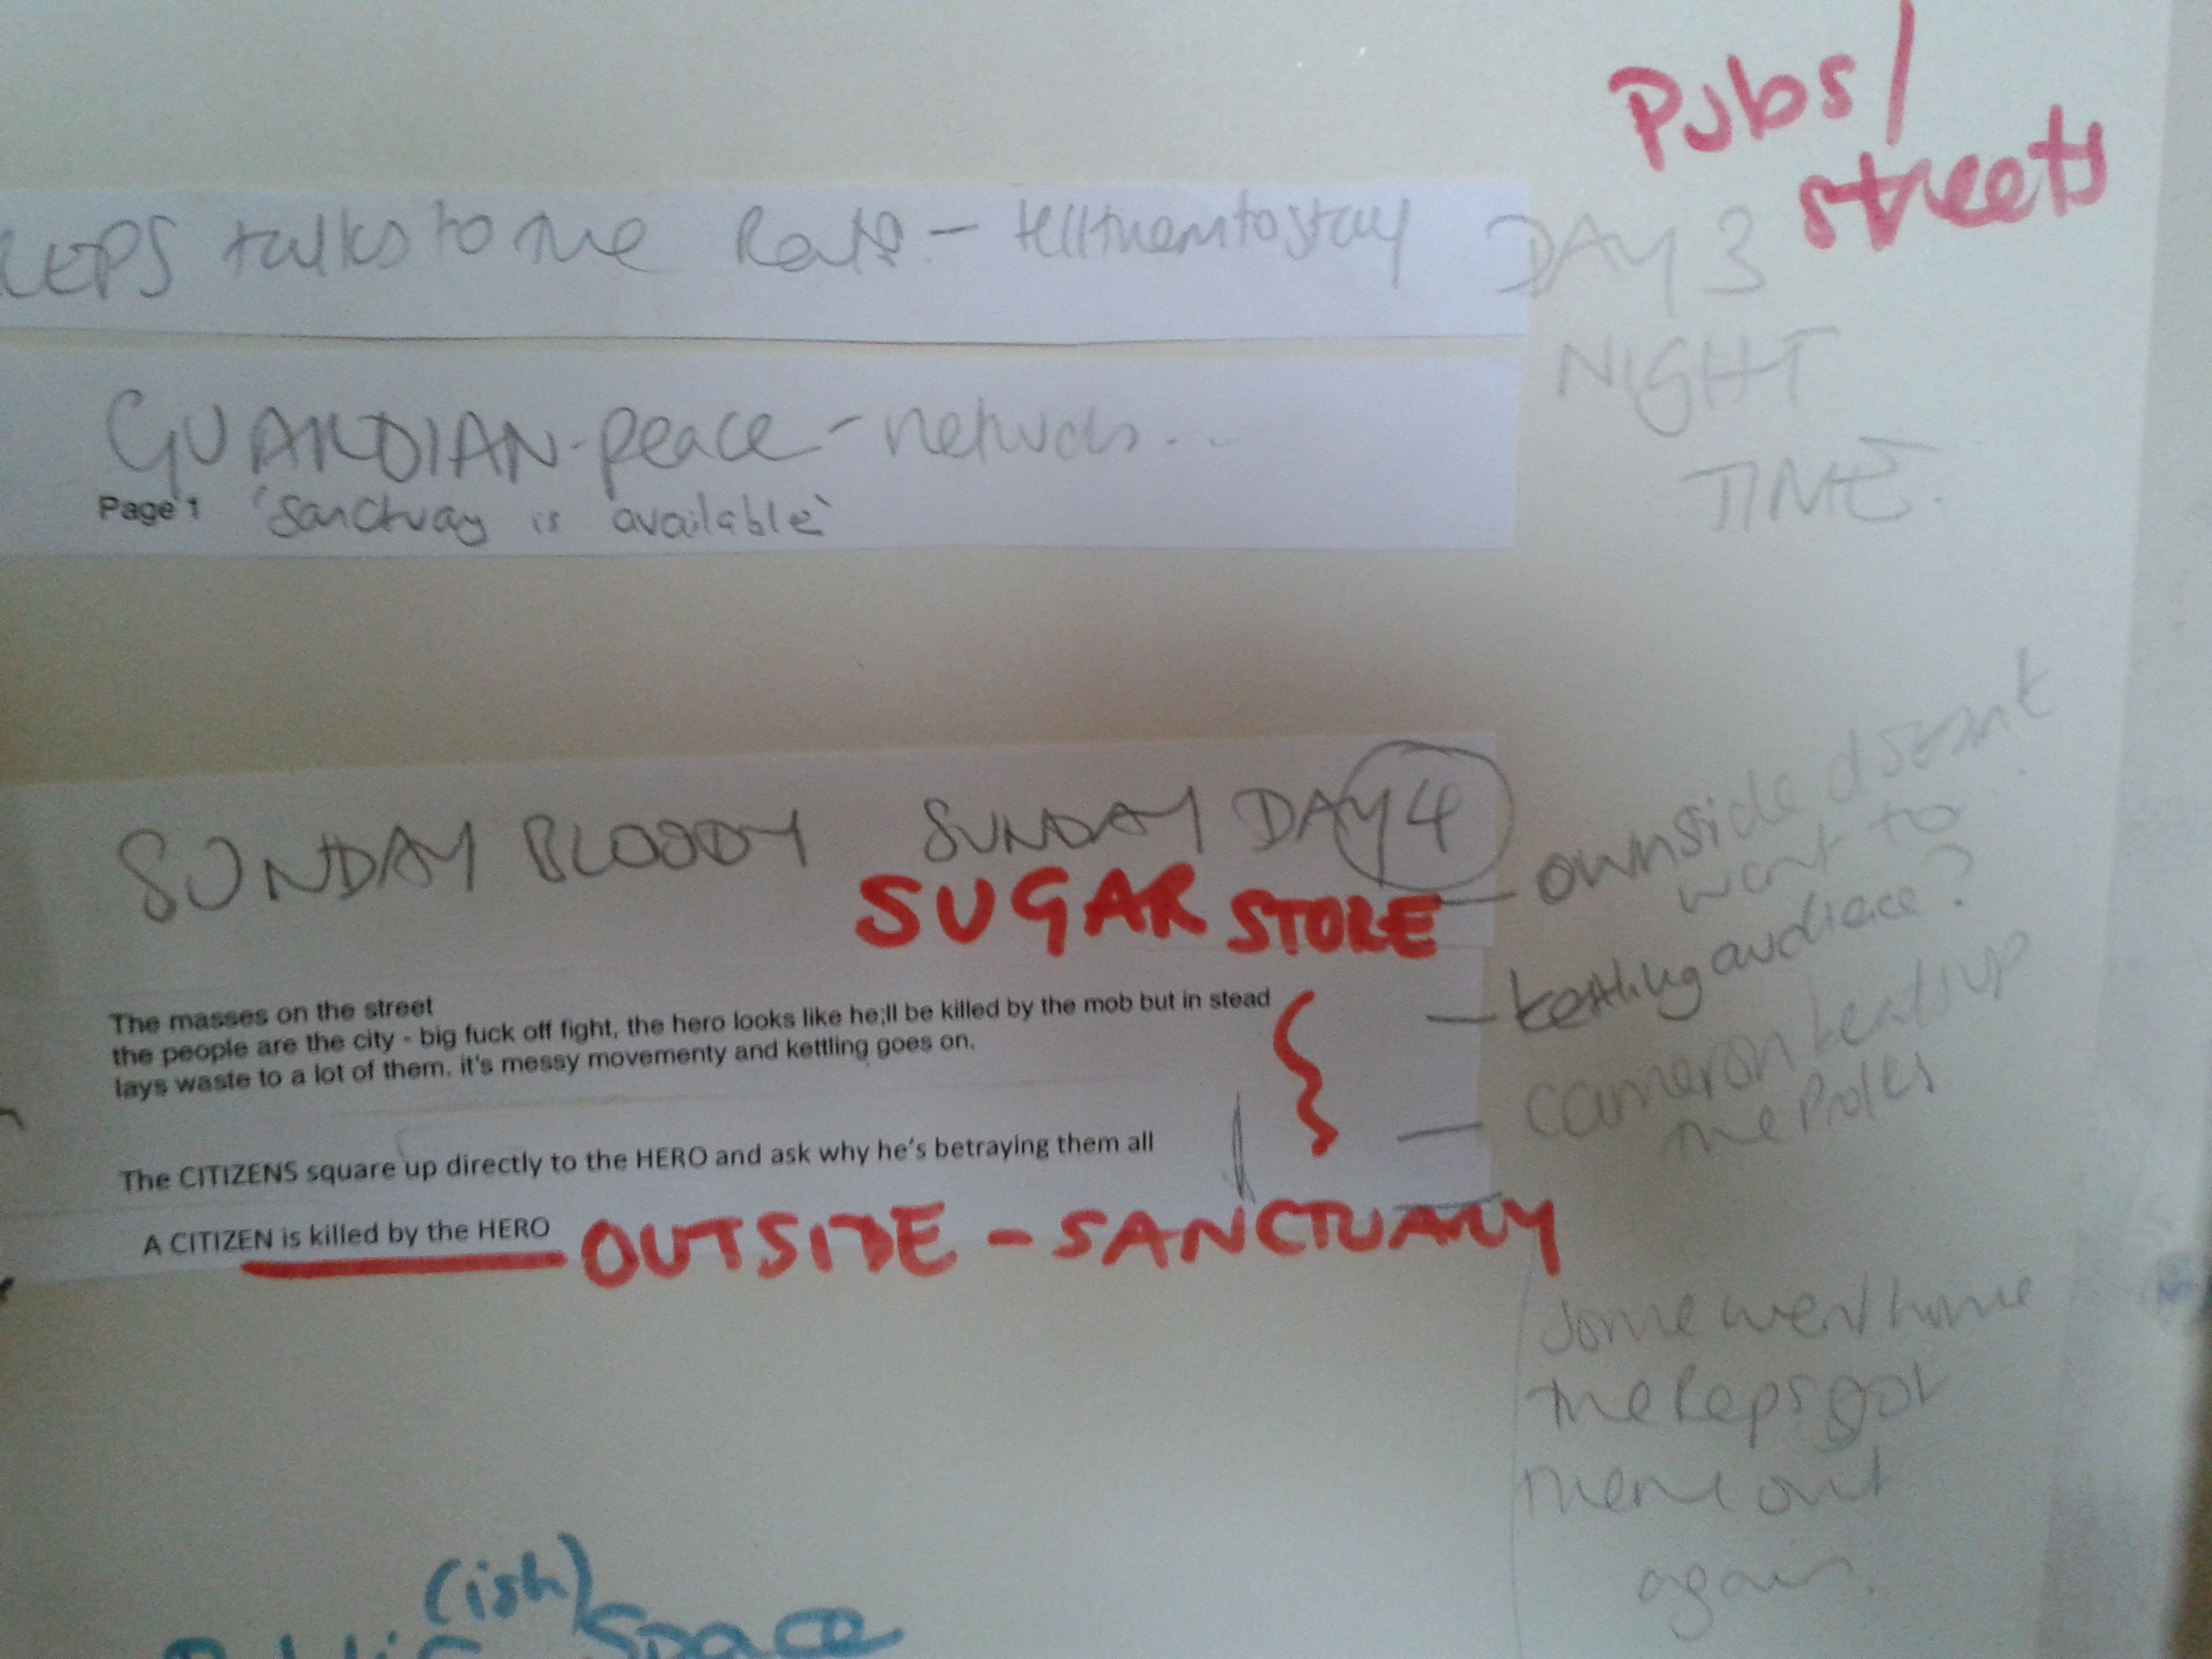 Pubs/
streets
REPS talks to the - tell them to stay
DAY 3
NIGHT
TIME
GUARDIAN - peace -
Page 1 'Sanctuary is available'
SUNDAY BLOODY SUNDAY DAY 4
SUGAR STORE
- own side doesn't
want to
- kettling audience?
The masses on the street
the people are the city - big fuck off fight, the hero looks like he;ll be killed by the mob but in stead
lays waste to a lot of them. it's messy movementy and kettling goes on.
- Cameron up
the Proles
The CITIZENS square up directly to the HERO and ask why he's betraying them all
A CITIZEN is killed by the HERO
OUTSIDE - SANCTUARY
some went home
the Reps got
them out
again.
(ish)
Public Space